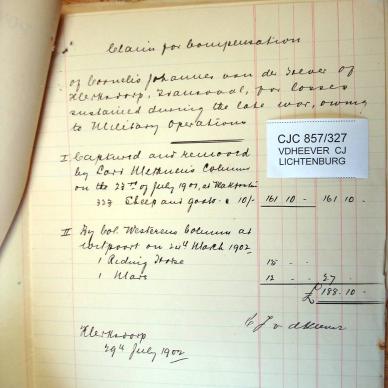 Claim for Compensation
of Cornelis Johannes van der Heever of
Klerksdorp, Transvaal, for losses
sustained during the late war, owing
to Military Operations
CJC 857/327
VDHEEVER CJ
LICHTENBURG
I Captured and removed
by Lord Methuen's Column
on the of July 1901, at
323 Sheep and goats @ 10/- 161 10 - 161 10 -
II By Col. Column at
on 24th March 1902
1 Riding Horse 15 - -
1 Mare 12 - - 27 - -
£ 188 - 10 -
C J v d Heever
Klerksdorp
29th July 1902